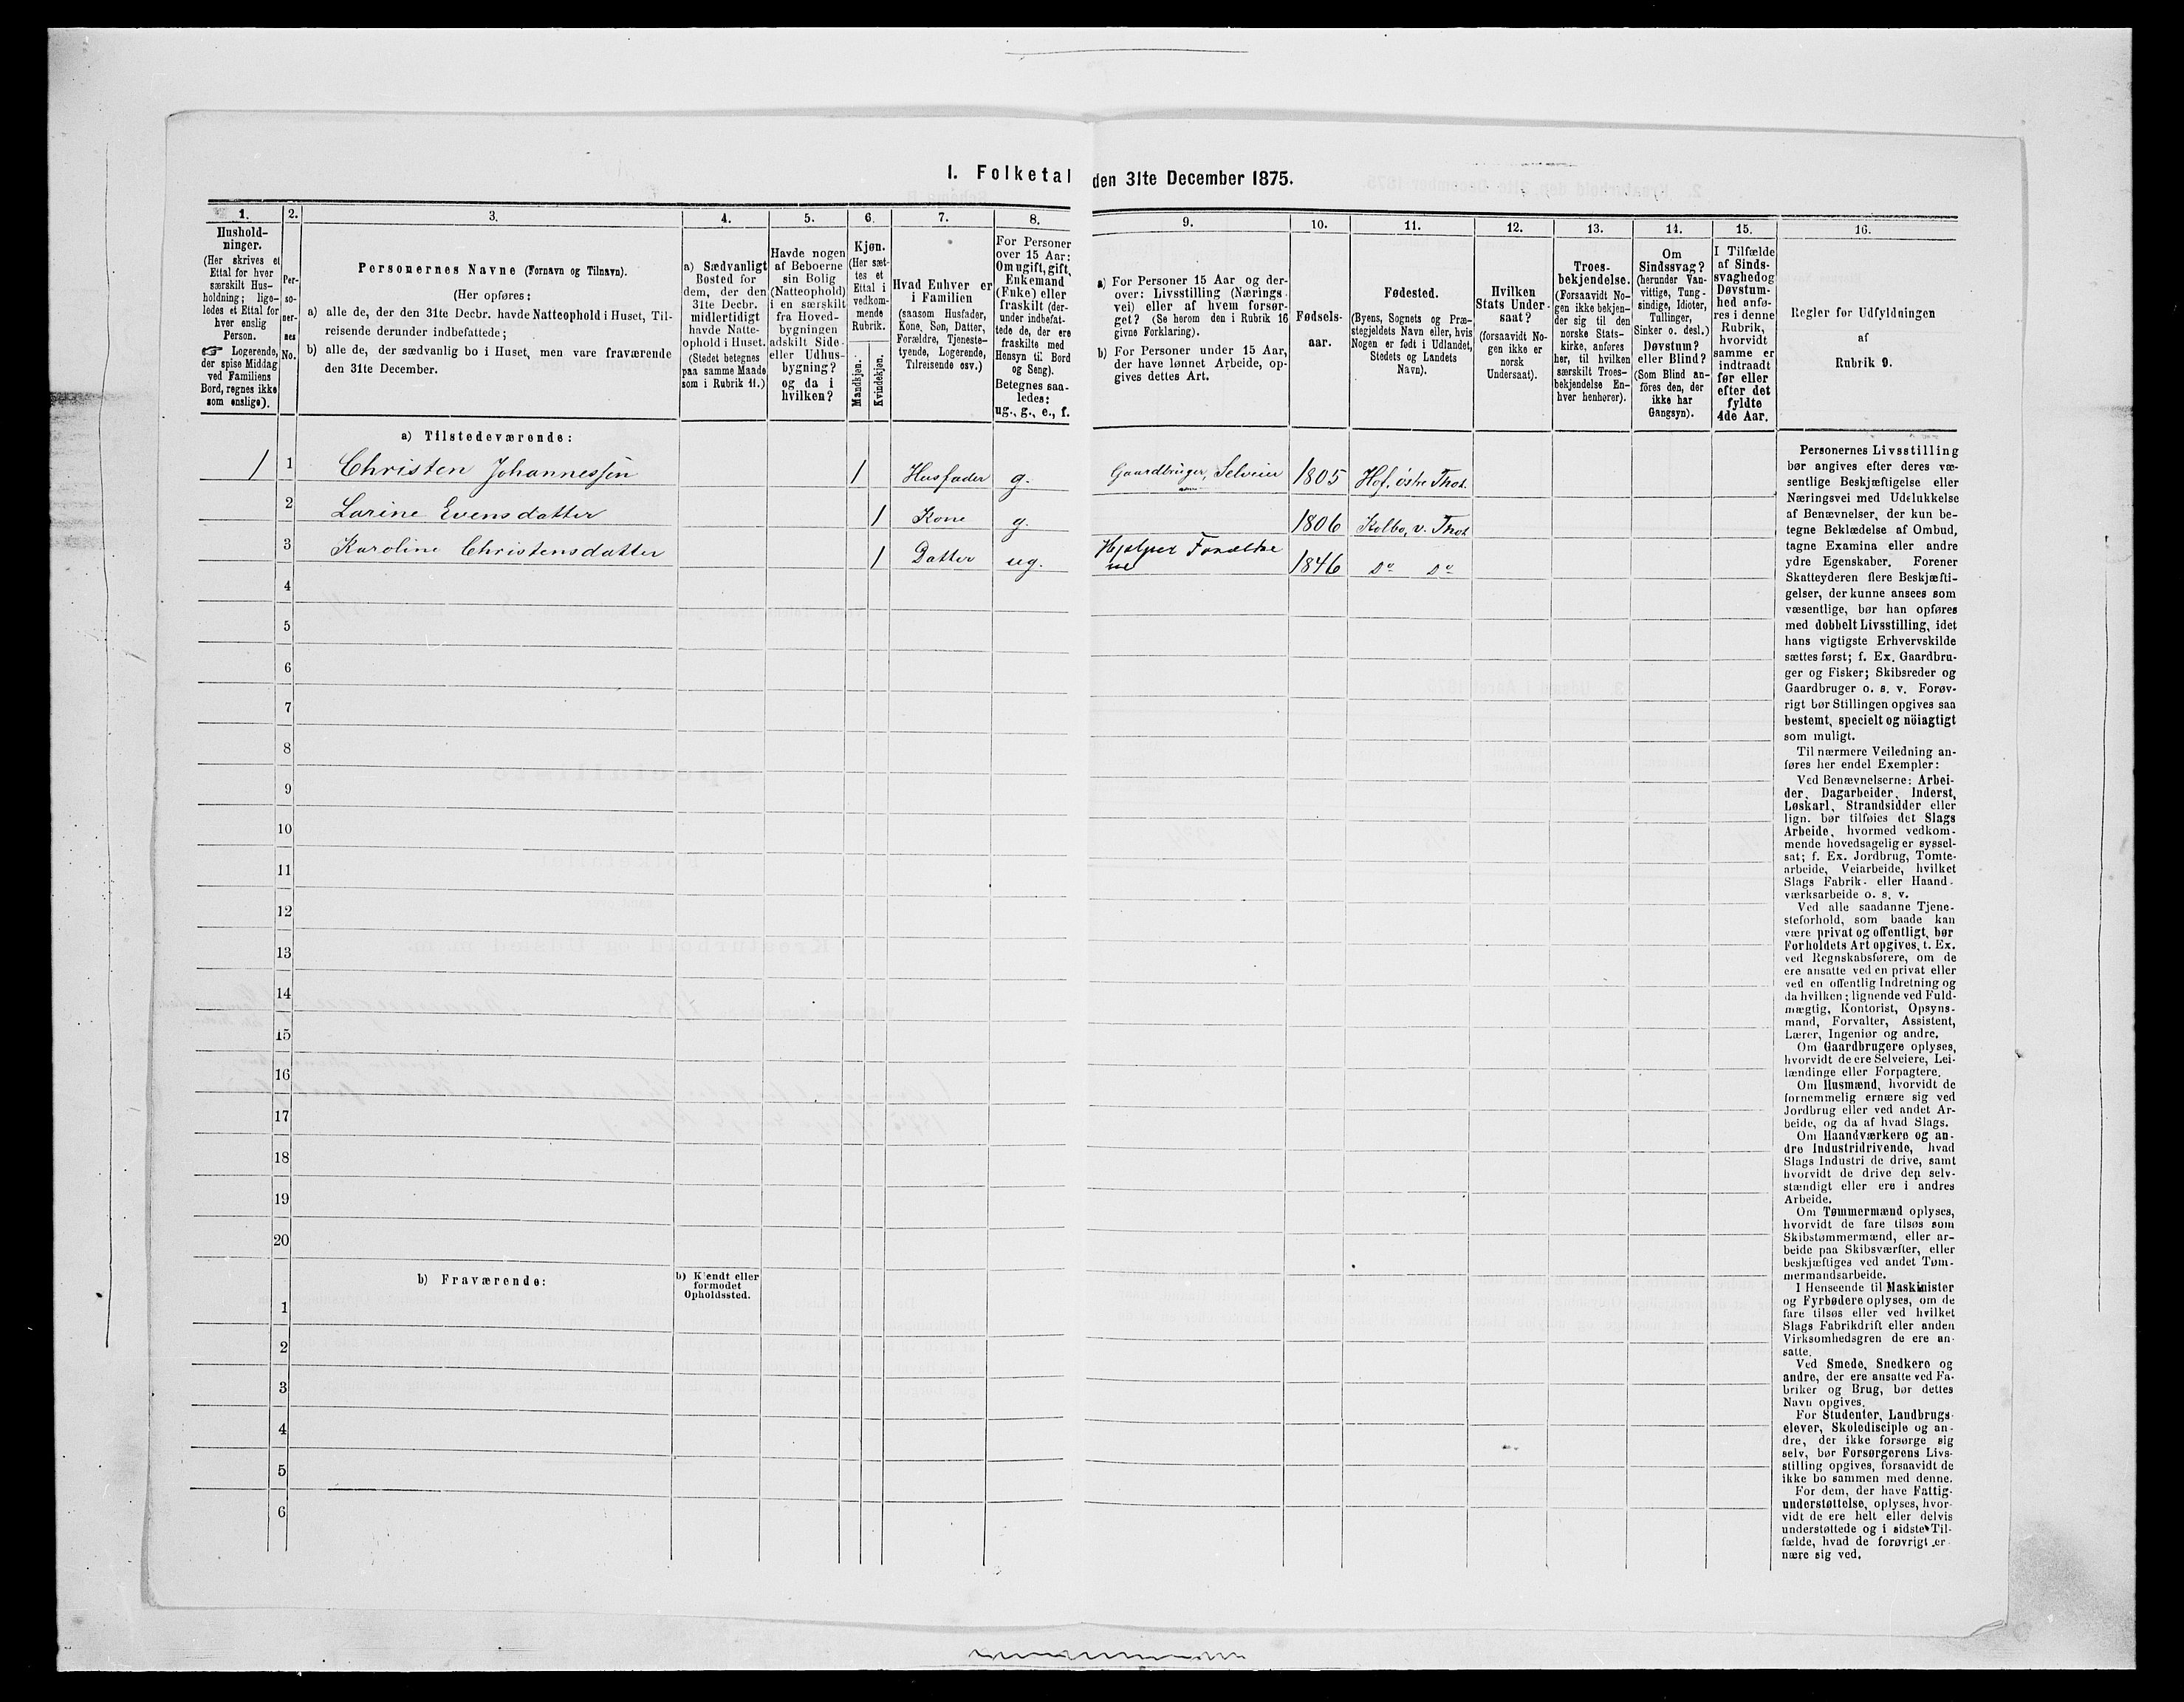 I. Folketal den 31te December 1875.
1.
Hushold-
ninger.
(Her skrives et
Ettal for hver
særskilt Hus-
holdning; lige-
ledes et Ettal for
hver enslig
Person.
☞ Logerende,
der spise Middag
ved Familiens
Bord, regnes ikke
som enslige).
2.
Per-
so-
ner-
nes
No.
3.
Personernes Navne (Fornavn og Tilnavn).
(Her opføres:
a) alle de, der den 31te Decbr. havde Natteophold i Huset, Til-
reisende derunder indbefattede;
b) alle de, der sædvanlig bo i Huset, men vare fraværende
den 31te December.
4.
a) Sædvanligt
Bosted for
dem, der den
31te Decbr.
midlertidigt
havde Natte-
ophold i Huset.
(Stedet betegnes
paa samme Maade
som i Rubrik 11.)
5.
Havde nogen
af Beboerne
sin Bolig
(Natteophold)
i en særskilt
fra Hoved-
bygningen
adskilt Side-
eller Udhus-
bygning?
og da i
hvilken?
6.
Kjøn.
(Her sæt-
tes et
Ettal i
vedkom-
mende
Rubrik.
Mandkjøn.
Kvindekjøn.
7.
Hvad Enhver er
i Familien
(saasom Husfader,
Kone, Søn, Datter,
Forældre, Tjeneste-
tyende, Logerende,
Tilreisende osv.)
8.
For Personer
over 15 Aar:
Om ugift, gift,
Enkemand
(Enke) eller
fraskilt (der-
under indbefat-
tede de, der ere
fraskilte med
Hensyn til Bord
og Seng).
Betegnes saa-
ledes:
ug., g., e., f.
9.
a) For Personer 15 Aar og der-
over: Livsstilling (Nærings-
vei) eller af hvem forsør-
get? (Se herom den i Rubrik 16
givne Forklaring).
b) For Personer under 15 Aar,
der have lønnet Arbeide, op-
gives dettes Art.
10.
Fødsels-
aar.
11.
Fødested.
(Byens, Sognets og Præ-
stegjeldets Navn eller, hvis
Nogen er født i Udlandet,
Stedets og Landets
Navn).
12.
Hvilken
Stats Under-
saat?
(forsaavidt No-
gen ikke er
norsk
Undersaat).
13.
Troes-
bekjendelse.
(Forsaavidt No-
gen ikke bekjen-
der sig til den
norske Stats-
kirke, anføres
her, til hvilken
særskilt Troes-
bekjendelse En-
hver henhører).
14.
Om
Sindssvag?
(herunder Van-
vittige, Tung-
sindige, Idioter,
Tullinger,
Sinker o. desl.)
Døvstum?
eller Blind?
(Som Blind an-
føres den, der
ikke har
Gangsyn).
15.
I Tilfælde
af Sinds-
svaghed og
Døvstum-
hed anfø-
res i denne
Rubrik,
hvorvidt
samme er
indtraadt
før eller
efter det
fyldte
4de Aar.
16.
Regler for Udfyldningen
af
Rubrik 9.
a) Tilstedeværende:
1 1 Christen Johannessen 1 Husfader g. Gaardbruger, Selveier 1805 Hof, östre Thot.
2 Larine Evensdatter 1 Kone g. 1806 Kolbo, v. Thot
3 Karoline Christensdatter 1 Datter ug. Hjelper Forældre
ne 1846 do do
4
5
6
7
8
9
10
11
12
13
14
15
16
17
18
19
20
b) Fraværende:
b) Kjendt eller
formodet
Opholdssted.
1
2
3
4
5
6
Personernes Livsstilling
bør angives efter deres væ-
sentlige Beskjæftigelse eller
Næringsvei med Udelukkelse
af Benævnelser, der kun be-
tegne Beklædelse af Ombud,
tagne Examina eller andre
ydre Egenskaber. Forener
Skatteyderen flere Beskjæfti-
gelser, der kunne ansees som
væsentlige, bør han opføres
med dobbelt Livsstilling, idet
hans vigtigste Erhvervskilde
sættes først; f. Ex. Gaardbru-
ger og Fisker; Skibsreder og
Gaardbruger o. s. v. Forøv-
rigt bør Stillingen opgives saa
bestemt, specielt og nöiagtigt
som muligt.
Til nærmere Veiledning an-
føres her endel Exempler:
Ved Benævnelserne: Arbei-
der, Dagarbeider, Inderst,
Løskarl, Strandsidder eller
lign. bør tilføies det Slags
Arbeide, hvormed vedkom-
mende hovedsagelig er syssel-
sat; f. Ex. Jordbrug, Tomte-
arbeide, Veiarbeide, hvilket
Slags Fabrik- eller Haand-
værksarbeide o. s. v.
Ved alle saadanne Tjene-
steforhold, som baade kan
være privat og offentligt, bør
Forholdets Art opgives, t. Ex.
ved Regnskabsførere, om de
ere ansatte ved en privat eller
ved en offentlig Indretning og
da hvilken; lignende ved Fuld-
mægtig, Kontorist, Opsyns-
mand, Forvalter, Assistent,
Lærer, Ingeniør og andre.
Om Gaardbrugere oplyses,
hvorvidt de ere Selveiere, Lei-
lændinge eller Forpagtere.
Om Husmænd, hvorvidt de
fornemmelig ernære sig ved
Jordbrug eller ved andet Ar-
beide, og da af hvad Slags.
Om Haandværkere og an-
dre Industridrivende, hvad
Slags Industri de drive, samt
hvorvidt de drive den selv-
stændigt eller ere i andres
Arbeide.
Om Tømmermænd oplyses,
hvorvidt de fare tilsøs som
Skibstømmermænd, eller ar-
beide paa Skibsværfter, eller
beskjæftiges ved andet Tøm-
mermandsarbeide.
I Henseende til Maskinister
og Fyrbødere oplyses, om de
fare tilsøs eller ved hvilket
Slags Fabrikdrift eller anden
Virksomhedsgren de ere an-
satte.
Ved Smede, Snedkere og
andre, der ere ansatte ved Fa-
briker og Brug, bør dettes
Navn opgives.
For Studenter, Landbrugs-
elever, Skoledisciple og an-
dre, der ikke forsørge sig
selv, bør Forsørgerens Livs-
stilling opgives, forsaavidt de
ikke bo sammen med denne.
For dem, der have Fattig-
understøttelse, oplyses, hvor-
vidt de ere helt eller delvis
understøttede og i sidste Til-
fælde, hvad de forøvrigt er-
nære sig ved.